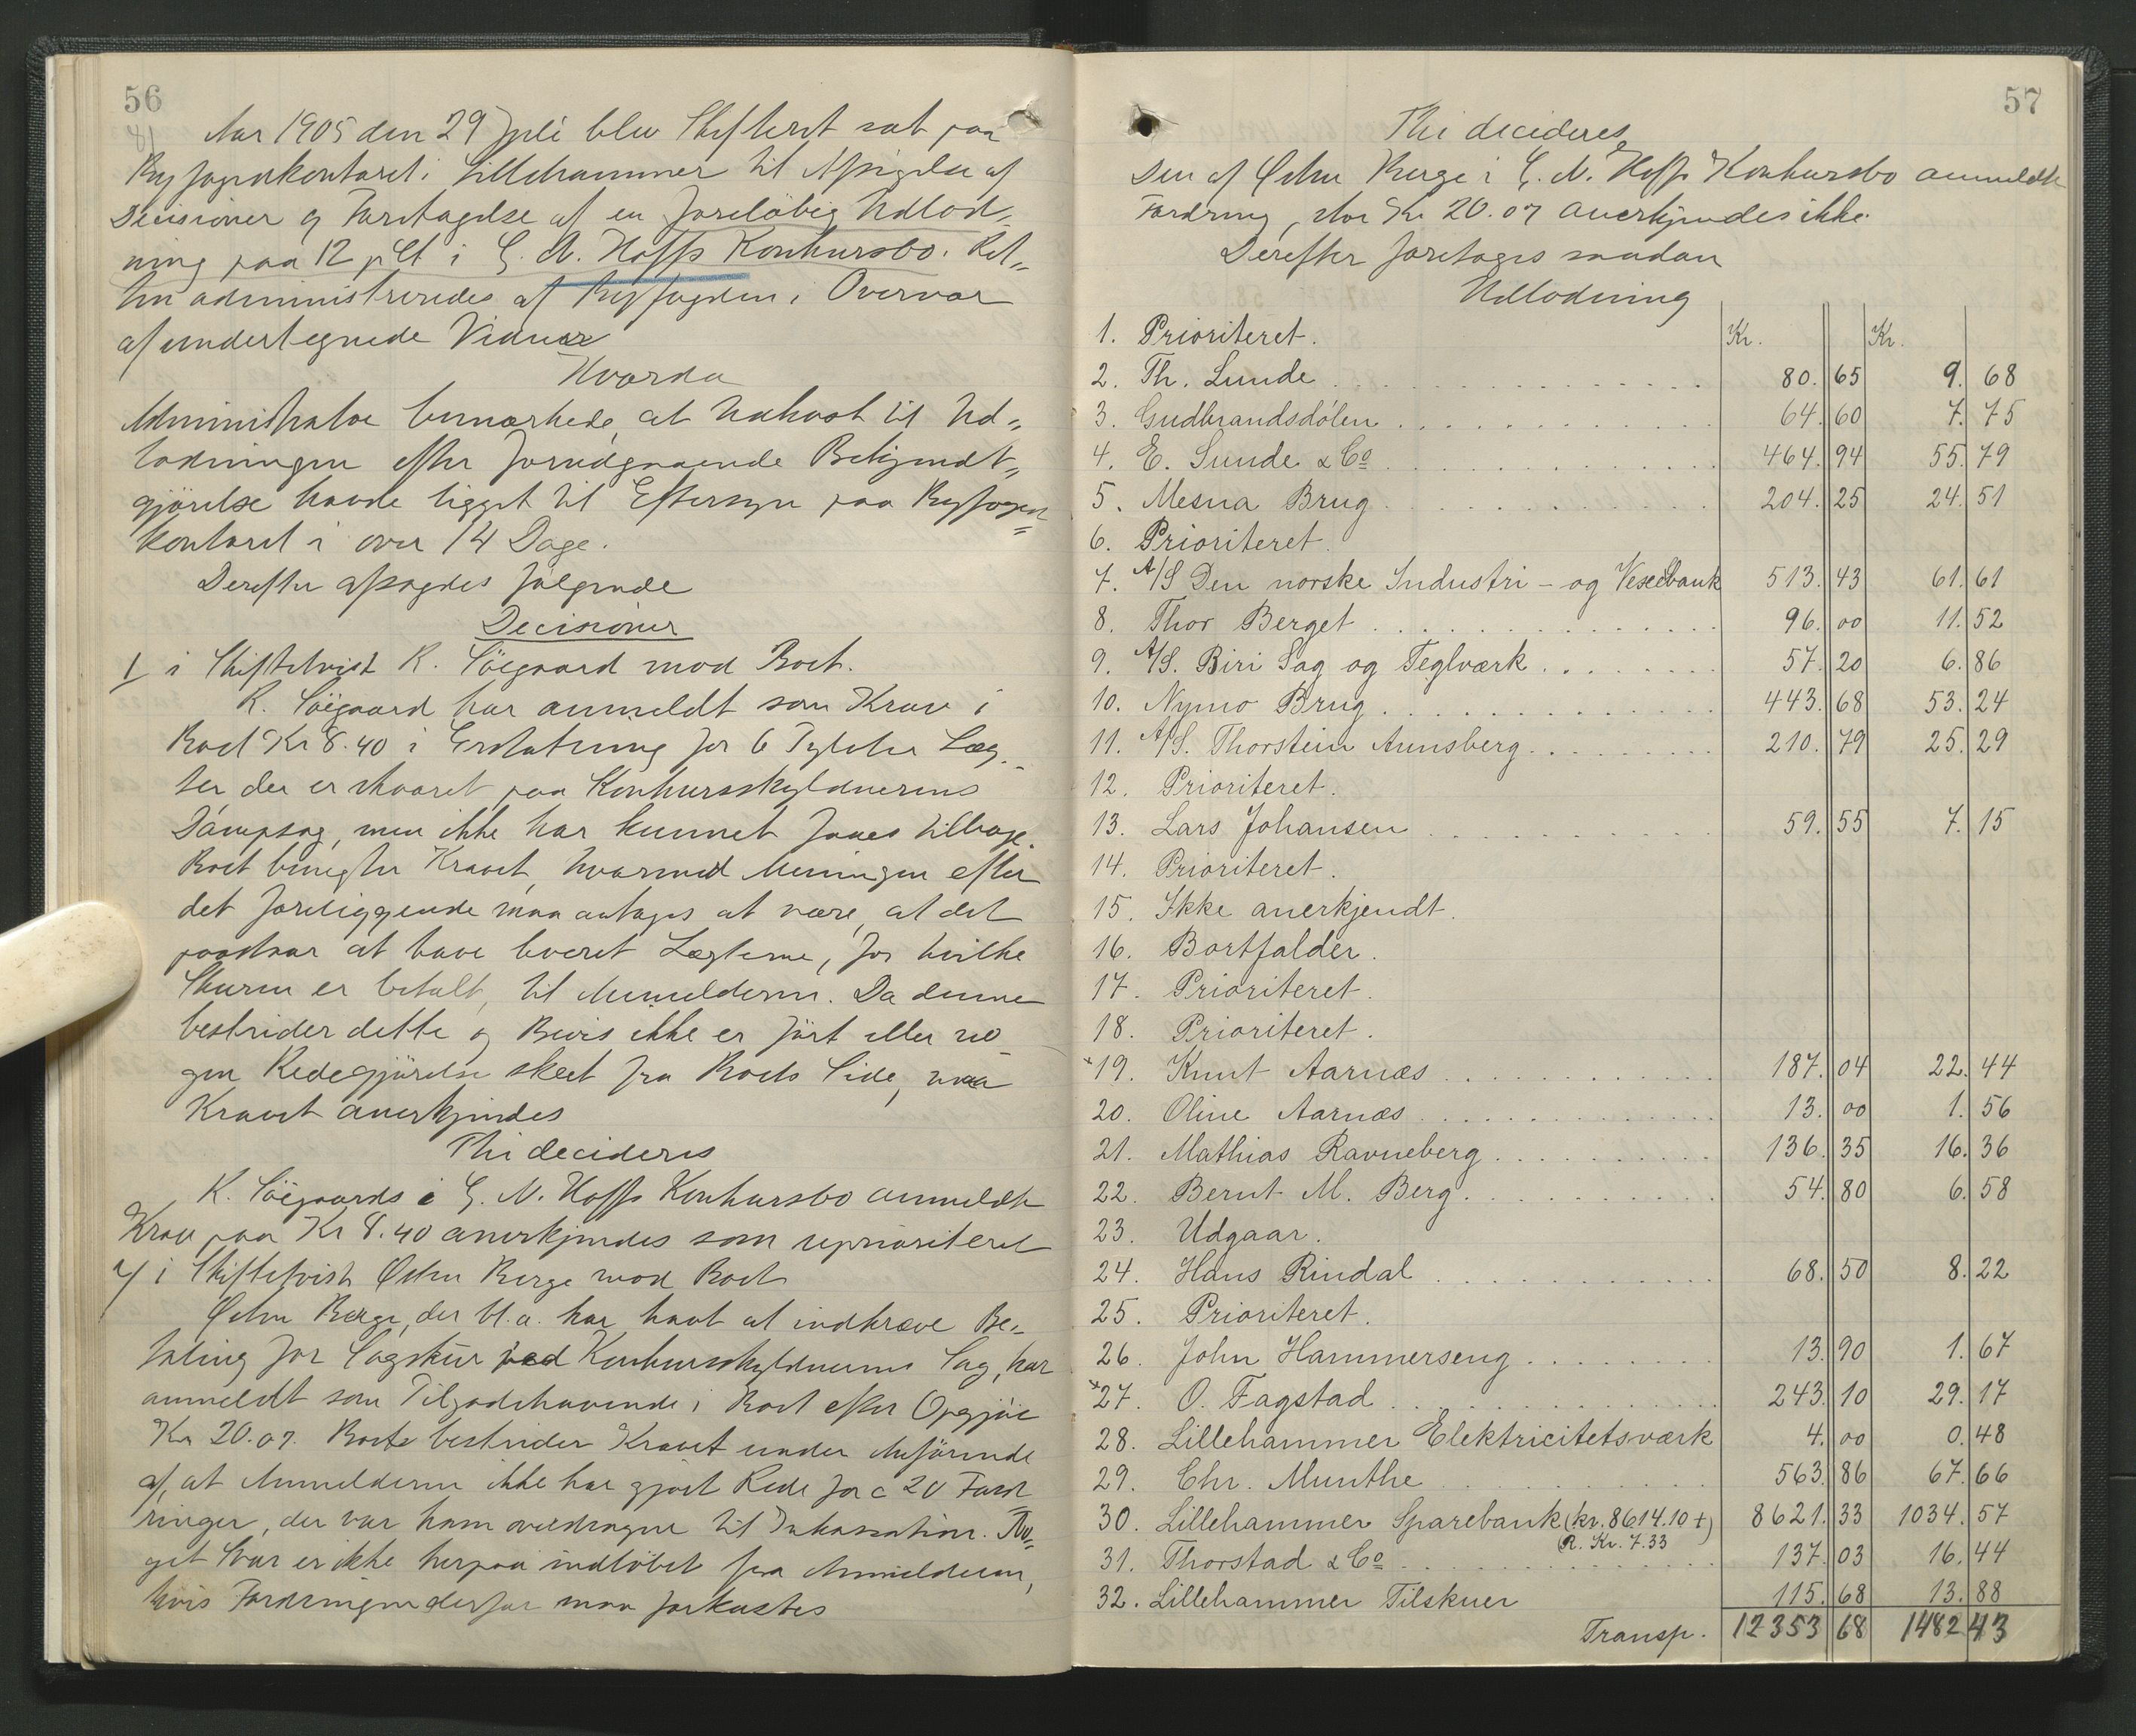 56
Aar 1905 den 29 Juli blev Skifteret sat paa
Byfogedkontoret i Lillehammer til Afsigelse af
Decisioner og Foretagelse af en foreløbig Udlod„
ning paa 12 pCt i G. N. Hoffs Konkursbo. Ret„
ten administreredes af Byfogden i Overvær
af undertegnede Vidner
Hvorda
Administrator bemærkede, at Udkast til Ud„
lodningen efter forudgaaende Bekjendt„
gjörelse havde ligget til Eftersyn paa Byfoged„
kontoret i over 14 Dage.
Derefter afsagdes følgende
Decisioner
1/ i Skiftetvist K. Söegaard mod Boet.
K. Söegaard har anmeldt som Krav i
Boet Kr 8.40 i Erstatning for 6 Tylvter Læg„
ter der er skaaret paa Konkursskyldnerens
Dampsag, men ikke har kunnet faaes tilbage.
Boet benegter Kravet, hvormed Meningen efter
det foreliggende maa antages at være, at det
paastaar at have leveret Lægterne, for hvilke
Skuren er betalt, til Anmelderen. Da denne
bestrider dette og Bevis ikke er fört eller no„
gen Redegjörelse skeet fra Boets Side, maa
Kravet anerkjendes
Thi decideres
K. Söegaards i G. N. Hoffs Konkursbo anmeldte
Krav paa Kr 8.40 anerkjendes som uprioriteret
2/ i Skiftetvist Østen Berge mod Boet
Østen Berge, der bl.a. har havt at indkræve Be„
taling for Sagskur ved Konkursskyldnerens Sag, har
anmeldt som Tilgodehavende i Boet efter Opgjör
Kr 20.07. Boet bestrider Kravet under Anförende
af, at Anmelderen ikke har gjort Rede for c 20 Ford„
ringer, der var ham overdragne til Inkassation. No„
get Svar er ikke herpaa indløbet fra Anmelderen,
hvis Fordringer derfor maa forkastes
57
Thi decideres
Den af Østen Berge i G. N. Hoffs Konkursbo anmeldte
Fordring, stor Kr 20.07 anerkjendes ikke.
Derefter foretoges saadan
Udlodning
1. Prioriteret. Kr. Kr.
2. Th. Lunde 80. 65 9. 68
3. Gudbrandsdölen 64. 60 7. 75
4. E. Sunde & Co 464. 94 55. 79
5. Mesna Brug 204. 25 24. 51
6. Prioriteret.
7. A/S Den norske Industri- og Vexelbank 513. 43 61. 61
8. Thor Berget 96. 00 11. 52
9. A/S. Biri Sag og Teglværk 57. 20 6. 86
10. Nymo Brug 443. 68 53. 24
11. A/S. Thorstein Aunsberg 210. 79 25. 29
12. Prioriteret.
13. Lars Johansen 59. 55 7. 15
14. Prioriteret.
15. Ikke anerkjendt.
16. Bortfalder.
17. Prioriteret.
18. Prioriteret.
×19. Knut Aarnæs 187. 04 22. 44
20. Oline Aarnæs 13. 00 1. 56
21. Mathias Ravneberg 136. 35 16. 36
22. Bernt M. Berg 54. 80 6. 58
23. Udgaar.
24. Hans Rindal 68. 50 8. 22
25. Prioriteret.
26. John Hammerseng 13. 90 1. 67
×27. O. Fagstad 243. 10 29. 17
28. Lillehammer Elektricitetsværk 4. 00 0. 48
29. Chr. Munthe 563. 86 67. 66
30. Lillehammer Sparebank (kr. 8614.10 + 8621. 33 1034. 57
R. Kr. 7.33)
31. Thorstad & Co 137. 03 16. 44
32. Lillehammer Tilskuer 115. 68 13. 88
Transp. 12353 68 1482 43